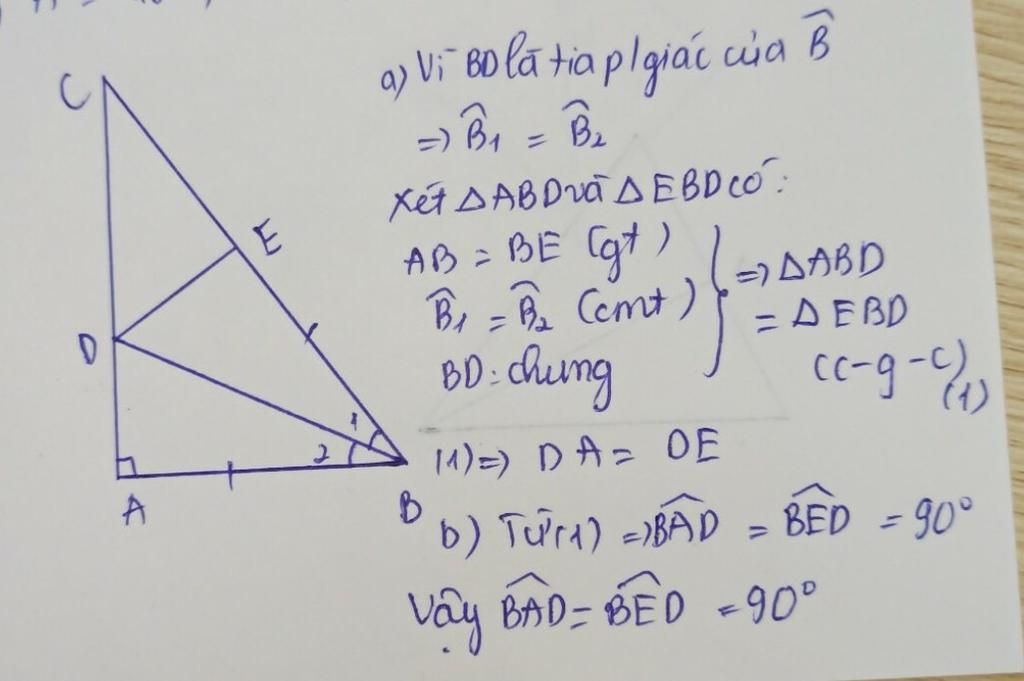 a) Vì BD là tia p/giác của B̂
=> B̂1 = B̂2
Xét △ABD và △EBD có:
AB = BE (gt)
B̂1 = B̂2 (cmt)
BD: chung
=> △ABD
= △EBD
(c-g-c)
(1)
(1) => DA = DE
b) Từ (1) => B̂AD = B̂ED = 90°
Vậy B̂AD = B̂ED = 90°
C
E
D
1
2
A
B